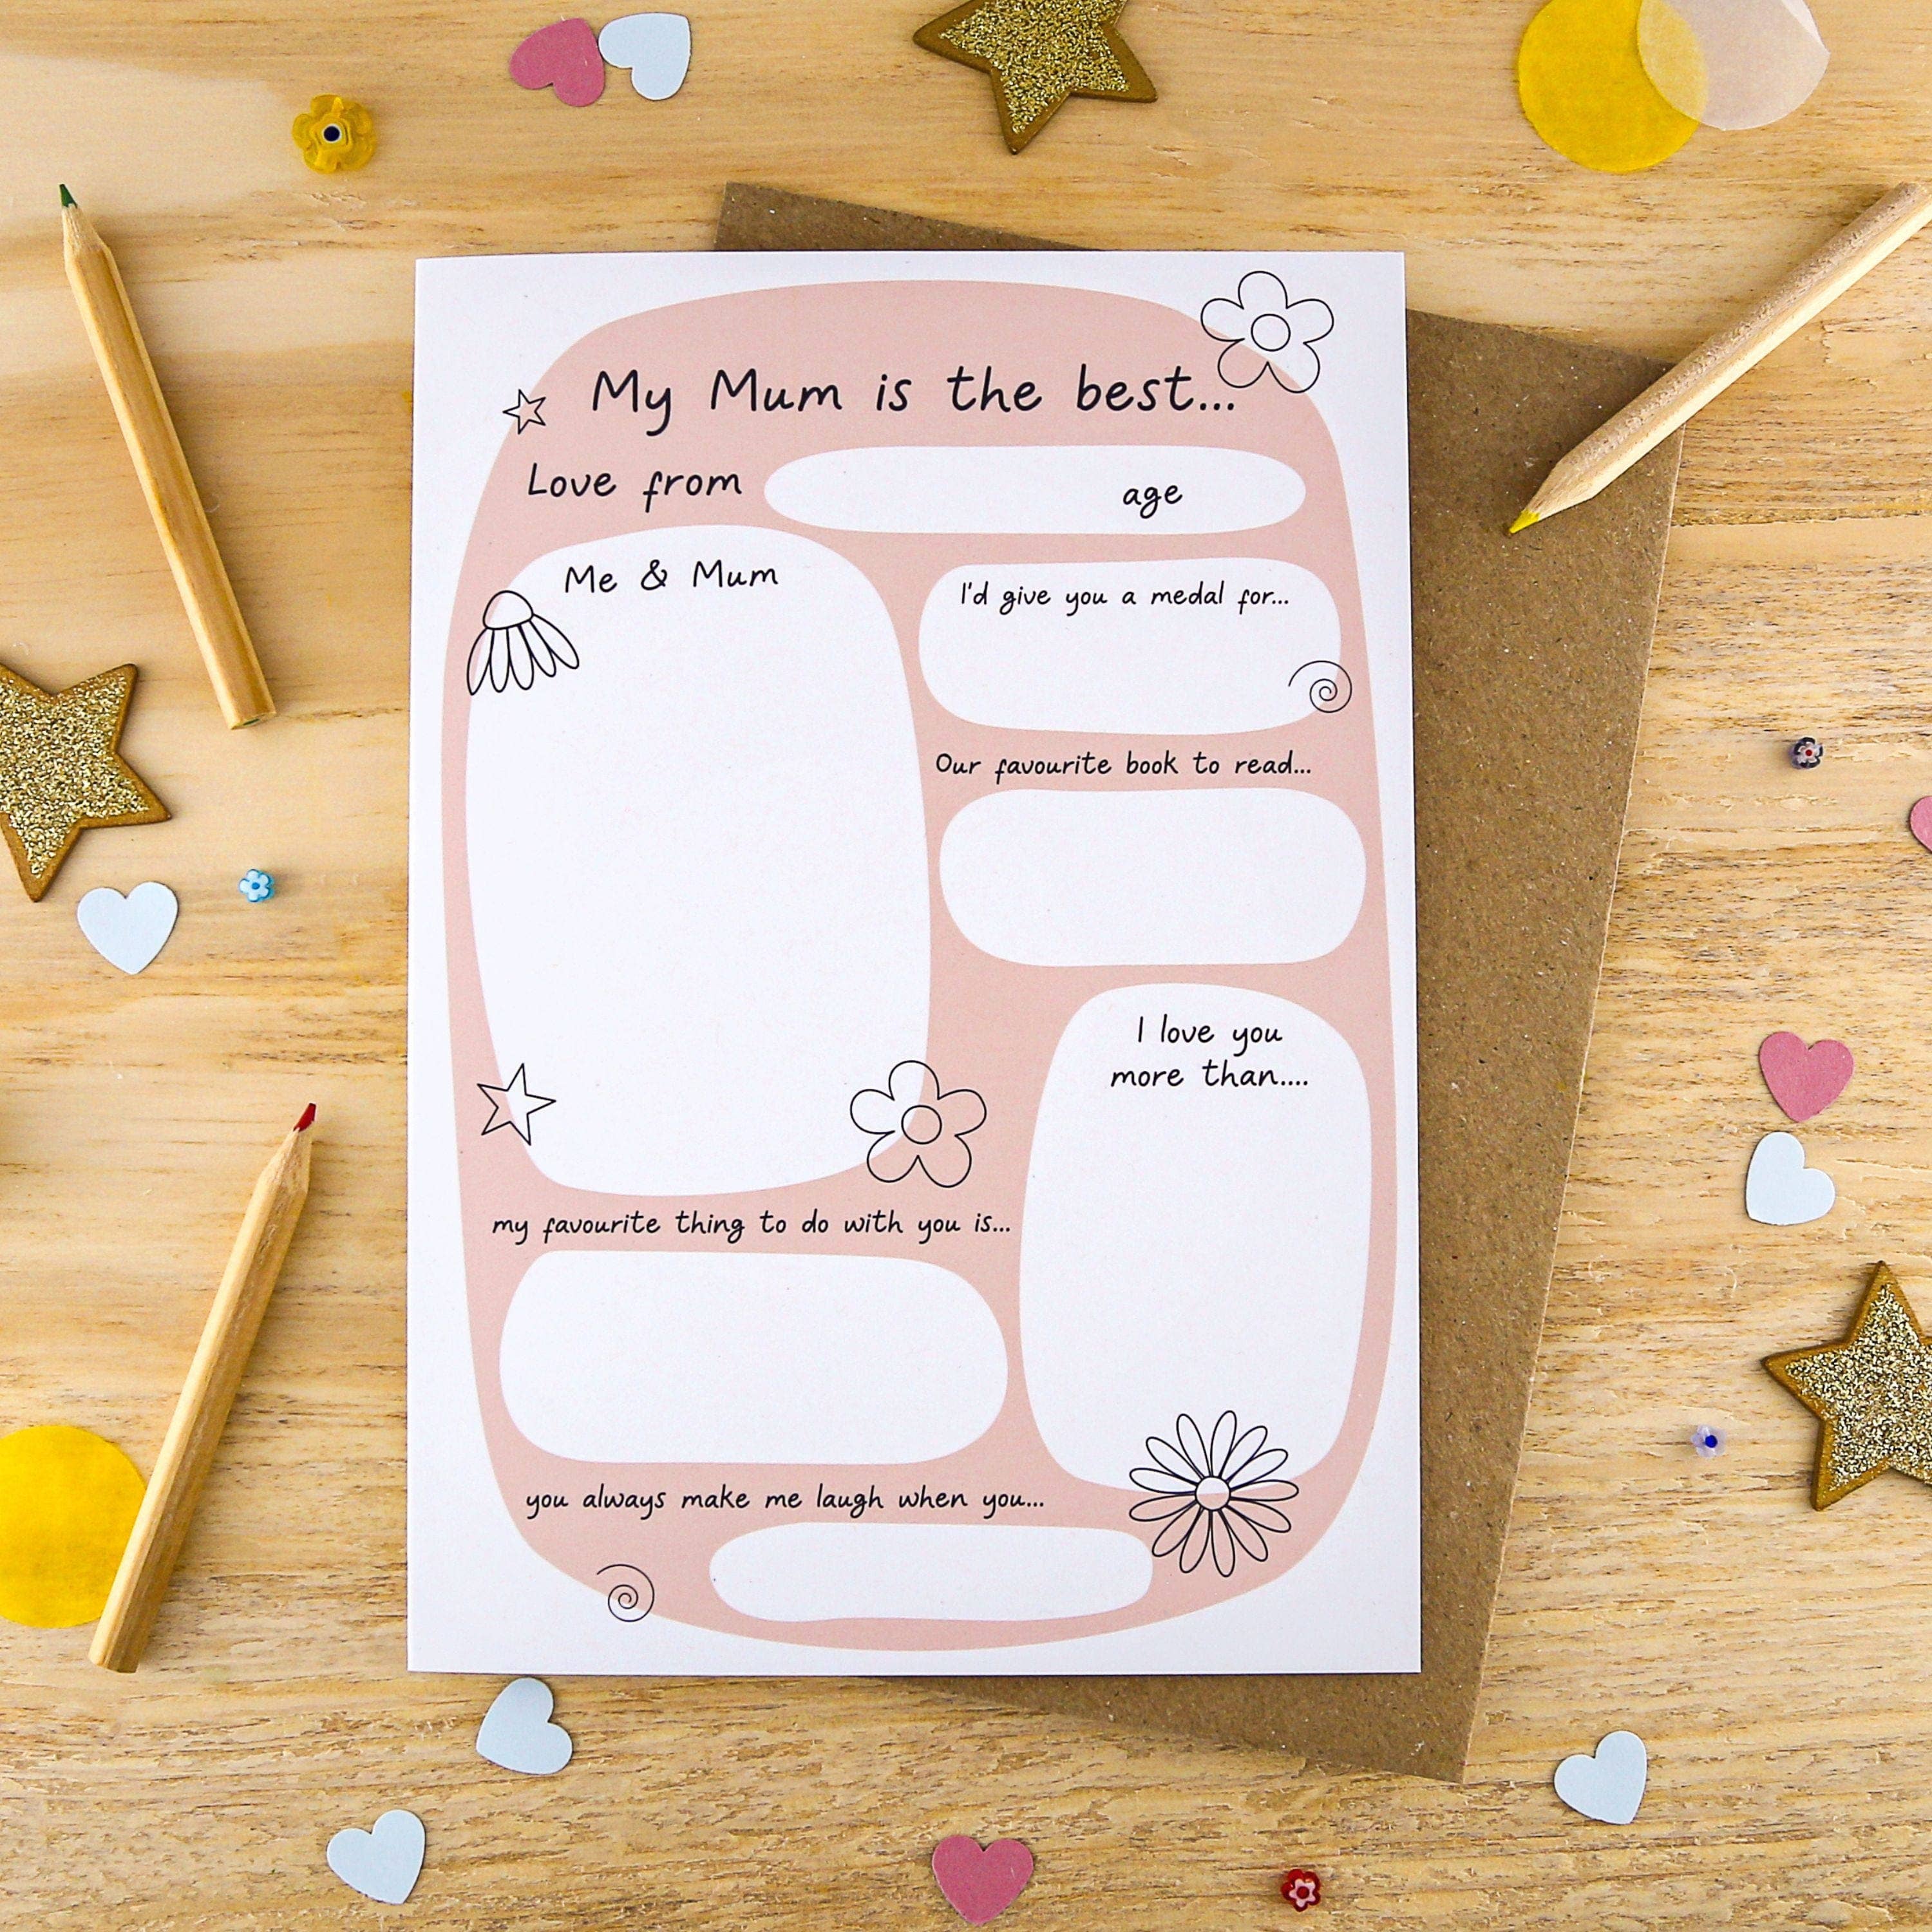 My Mum is the best...
Love from
age
Me & Mum
I'd give you a medal for...
Our favourite book to read...
I love you
more than....
my favourite thing to do with you is...
you always make me laugh when you...